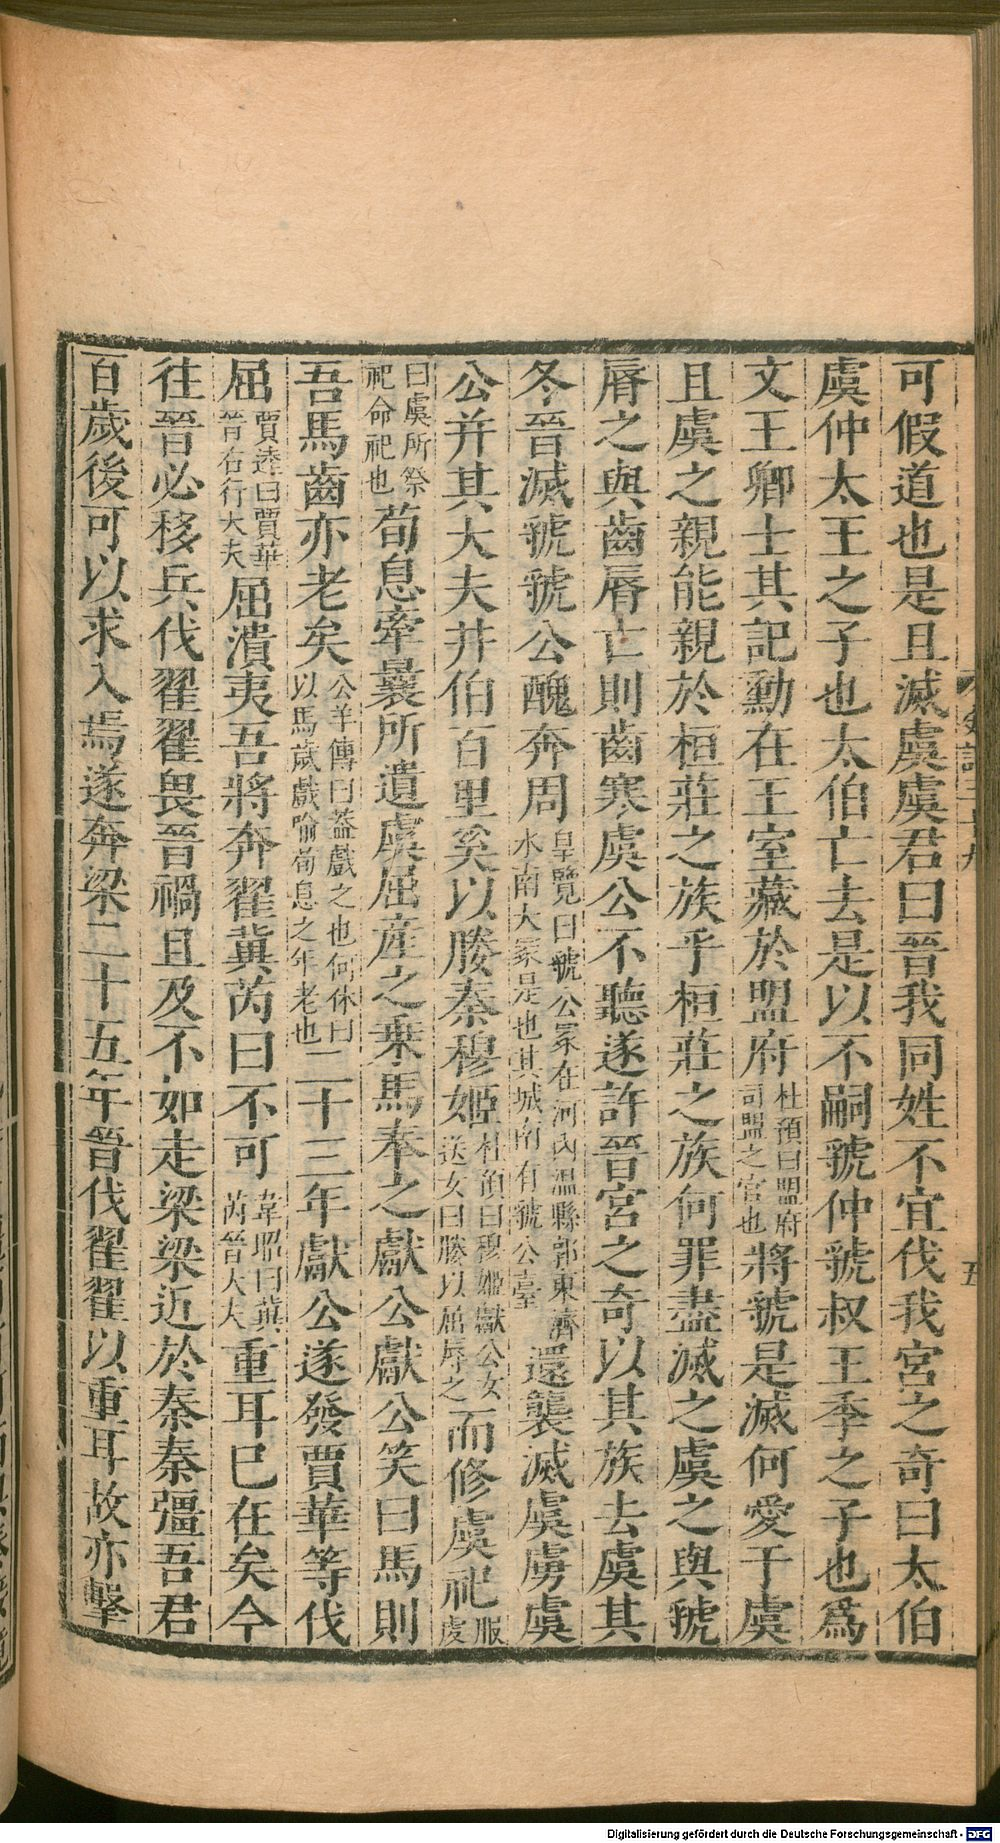 可假道也是且滅虞虞君曰晉我同姓不宜伐我宮之奇曰太伯
虞仲太王之子也太伯亡去是以不嗣虢仲虢叔王季之子也爲
文王卿士其記勳在王室藏於盟府杜預曰盟府司盟之官也將虢是滅何愛于虞
且虞之親能親於桓莊之族乎桓莊之族何罪盡滅之虞之與虢
脣之與齒脣亡則齒寒虞公不聽遂許晉宮之奇以其族去虞其
冬晉滅虢虢公醜奔周皇覽曰虢公冢在河內溫縣郭東濟水南大冢是也其城南有虢公臺還襲滅虞虜虞
公并其大夫井伯百里奚以媵秦穆姬杜預曰穆姬獻公女送女曰媵以屈辱之而修虞祀服虔
曰虞所祭祀命祀也荀息牽曩所遺虞屈產之乘馬奉之獻公獻公笑曰馬則
吾馬齒亦老矣公羊傳曰蓋戲之也何休曰以馬歲戲喻荀息之年老也二十三年獻公遂發賈華等伐
屈賈逵曰賈華晉右行大夫屈潰夷吾將奔翟冀芮曰不可韋昭曰冀芮晉大夫重耳已在矣今
往晉必移兵伐翟翟畏晉禍且及不如走梁梁近於秦秦彊吾君
百歲後可以求入焉遂奔梁二十五年晉伐翟翟以重耳故亦擊
五
Digitalisierung gefördert durch die Deutsche Forschungsgemeinschaft - DFG